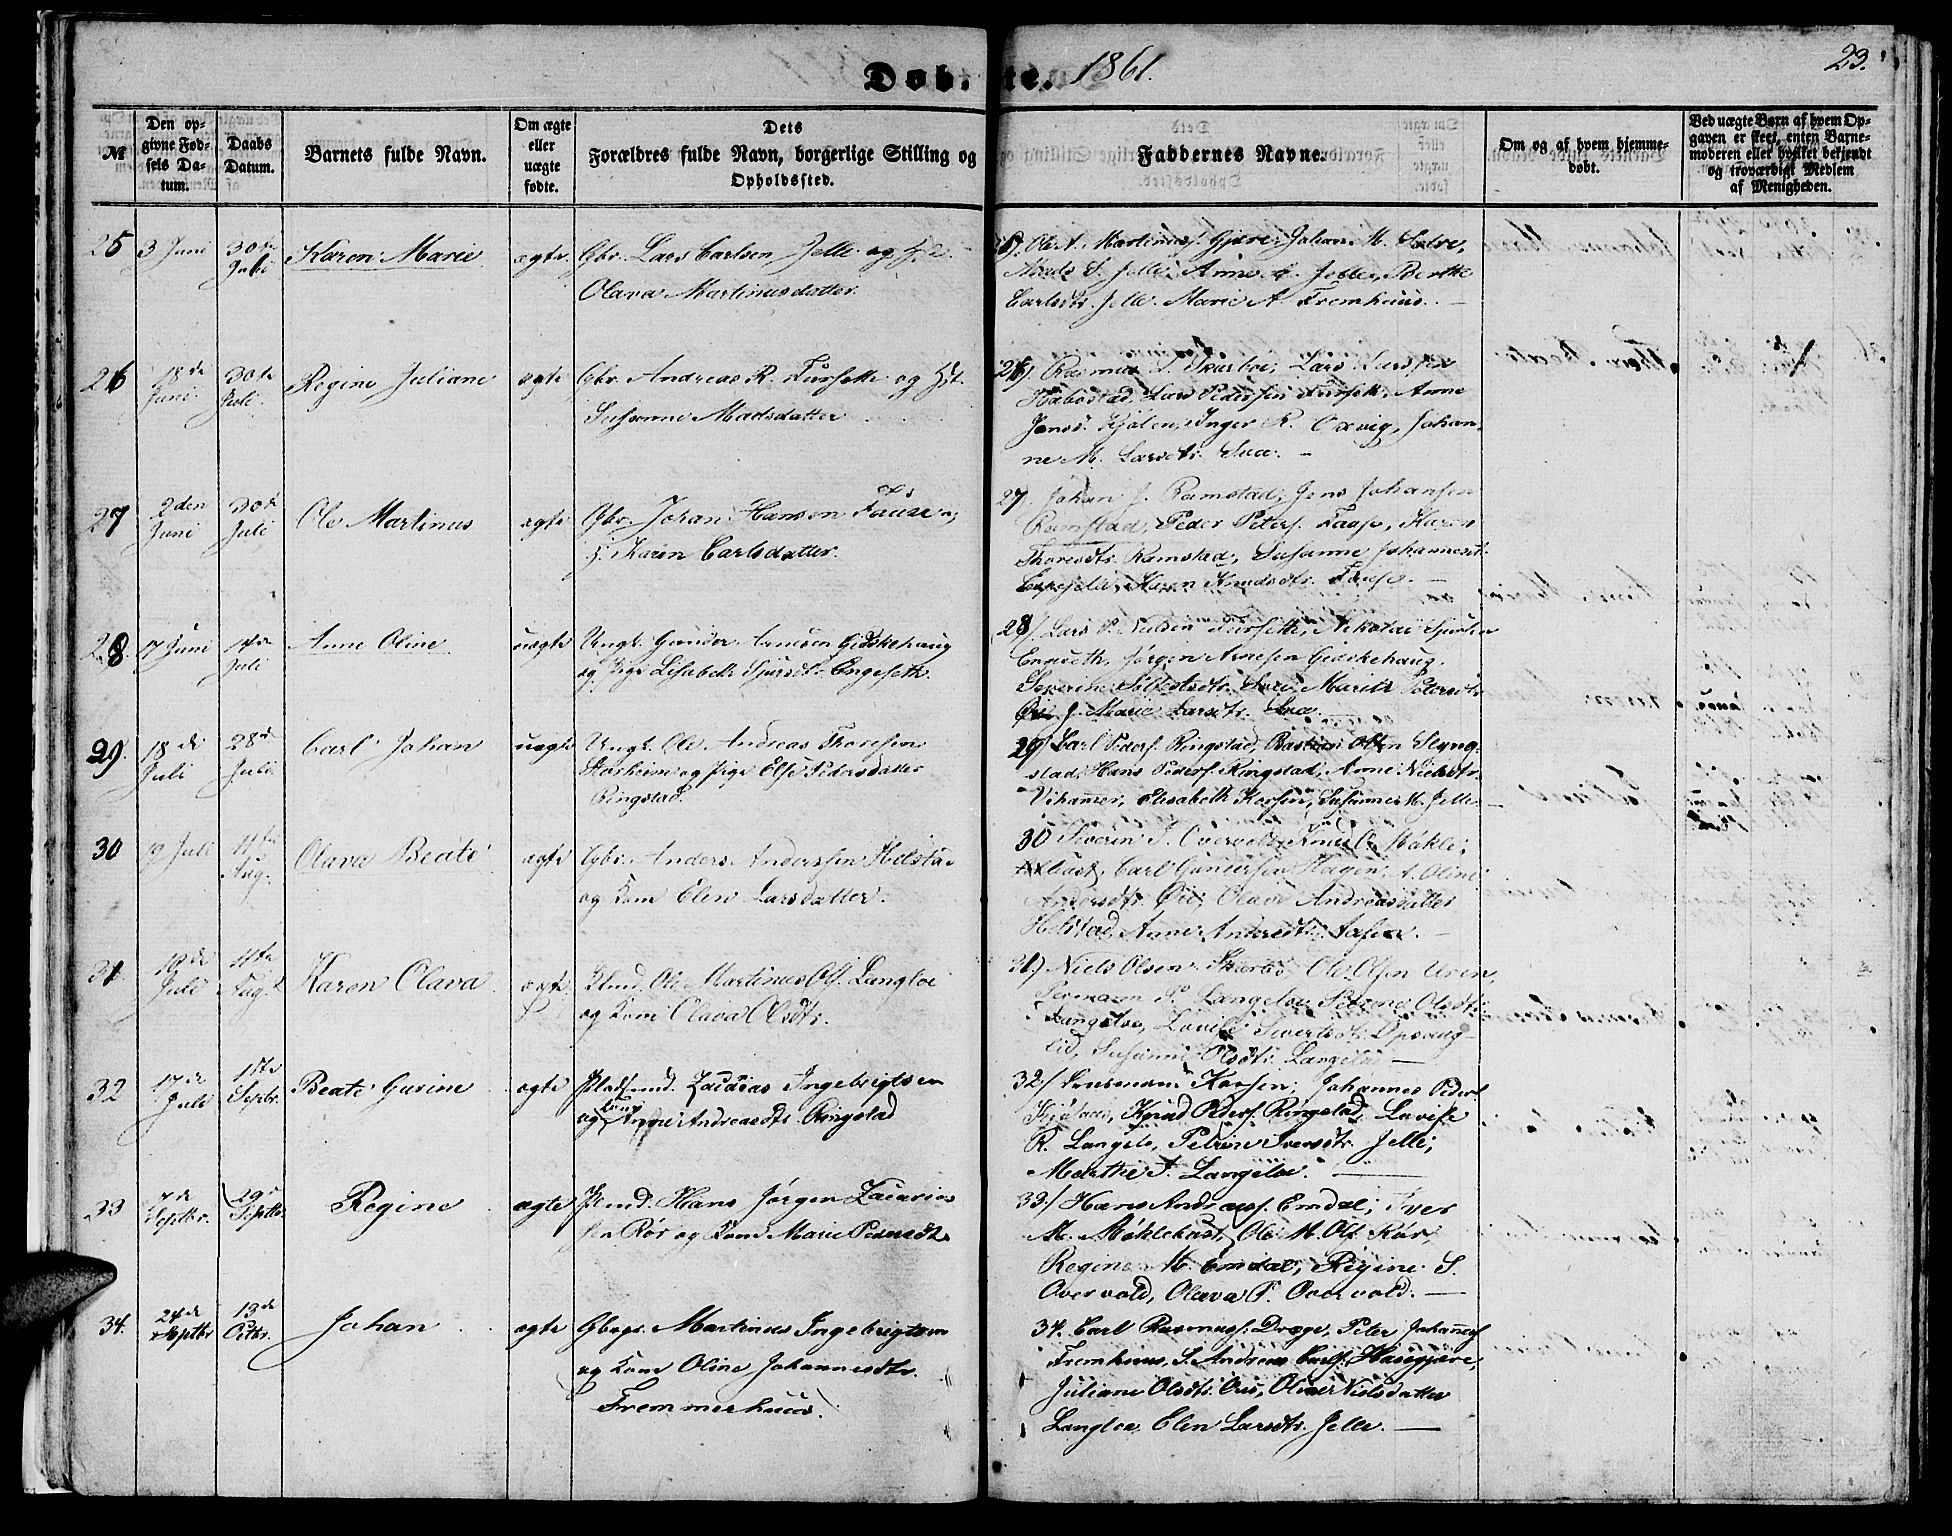 Døbte. 1861.
23.
№
Den opgivne Fødsels Datum.
Daabs Datum.
Barnets fulde Navn.
Om ægte eller uægte fødte.
Dets Forældres fulde Navn, borgerlige Stilling og Opholdssted.
Faddernes Navne.
Om og af hvem hjemmedøbt.
Ved uægte Børn af hvem Opgaven er skeet, enten Barnemoderen eller hvilket bekjendt og troværdigt Medlem af Menigheden.
25 3 Juni 30te Juli Karen Marie ægte Gbr. Lars Carlsen Jelle og
Olava Martinusdatter.
Ole A. Martinuss. Gjære, Johan M.
Mads S. Jelle, Anne Jelle, Berthe
Carlsdtr. Jelle. Marie A. Fremhuus. —
26 18de Juni 30te Juli Regine Juliane ægte Gbr. Andreas R. Fursette og Hst.
Susanne Madsdatter
26) Rasmus Skarboe, Lars Larssen
Lars Pederssen Fursett. Anne
Jensd. Kjølen, Inger R. Oxvig, Johan-
ne M. Larsdtr. Svee. —
27 2den Juni 30te Juli Ole Martinus ægte Gbr. Johan Hansen Fause og
H. Karen Carlsdatter.
27) Johan J. Ramstad, Jens Johansen
Ramstad, Peder Peters. Fause, Karen
Thoresdtr. Ramstad, Susanne Johannesdt.
Karen Knudsdtr. Fause. —
28 17 Juni 14de Juli Anne Oline uægte Ungk. Gunder Arnesen Gidskehaug
og Pige Lisabeth Sjursdt. Engeseth.
28/ Lars P. Nielsen Fursette, Nikolai Sjursen
Engseth, Jørgen Arnesen Gidskehaug,
Severine Marith Petersdtr.
Øie J. Marie Larsdtr. Svee —
29. 18de Juli 28de Juli Carl Johan uægte Ungk. Ole Andreas Thoresen
Storheim og Pige Else Pedersdatter
Ringstad.
29/ Carl Peders. Ringstad, Bastian Olsen Slyng-
stad, Hans Peders. Ringstad, Anne Nielsdtr.
Vihammer, Elisabeth Korsen, Susanne M. Jelle —
30 19 Juli 11te Aug. Olava Beate ægte Gbr. Anders Anderssen Helstad
og Kone Elen Larsdatter.
30 Severin I. Overvold, Knud O. Møkle-
bust, Carl Gundersen Hagen, A. Oline
Andersdtr. Øie, Olave Andreasdatter
Helstad, Anne Andersdtr. Aasen. —
31 19de Juli 11te Aug. Karen Olava ægte Pl.md. Ole Martinus Ols. Langloe
og Kone Olava Olsdtr.
31.) Niels Olsen Skarbø, Ole Olsen Uren,
P. Langeloe, Petrine Olsdtr.
Langeloe, Lovise Sivertsdt. Opsaug-
lid, Susanne Olsdtr. Langeloe —
32 17de Juli 1ste Septbr. Beate Gurine ægte Pladsmd. Zacarias Ingebrigtsen
og Kone Anne Andreasdtr. Ringstad
32/ Korsen, Johannes Peders.
Knud Peders. Ringstad, Lovise
R. Langelo, Petrine Iversdtr. Jelle;
Marthe I. Langeloe. —
33 7de Septbr. 29de Septbr. Regine ægte Pl.md. Hans Jørgen Zacarias
sen Rör og Kone Marie Pedersdt.
33/ Hans Andreass. Emdal; Iver
M. Møklebust, Ole M. Ols. Rör,
Regine M. Emdal, Regine S.
Overvold, Olava P. Overvold. —
34. 24de Septbr. 13de Octbr. Johan ægte Gbrgr. Martinus Ingebrigtsen
og Kone Oline Johannesdtr.
Fremmerhuus.
34. Carl Rasmuss. Drage, Peter Johannes
Fremhuus, S. Andreas Carls. Haisgjære,
Juliane Olsdtr. Øie, Oline Nielsdatter
Langloe, Elen Larsdtr. Jelle. —